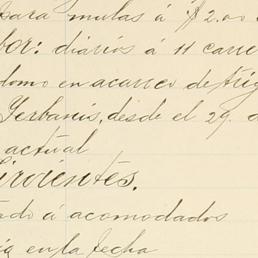 para mulas á $2.00
bor: diarios á 11 carre
domo en acarreo de trig
Yerbanis, desde el 29. d
actual
Sirvientes.
ado á acomodados
ia en la fecha